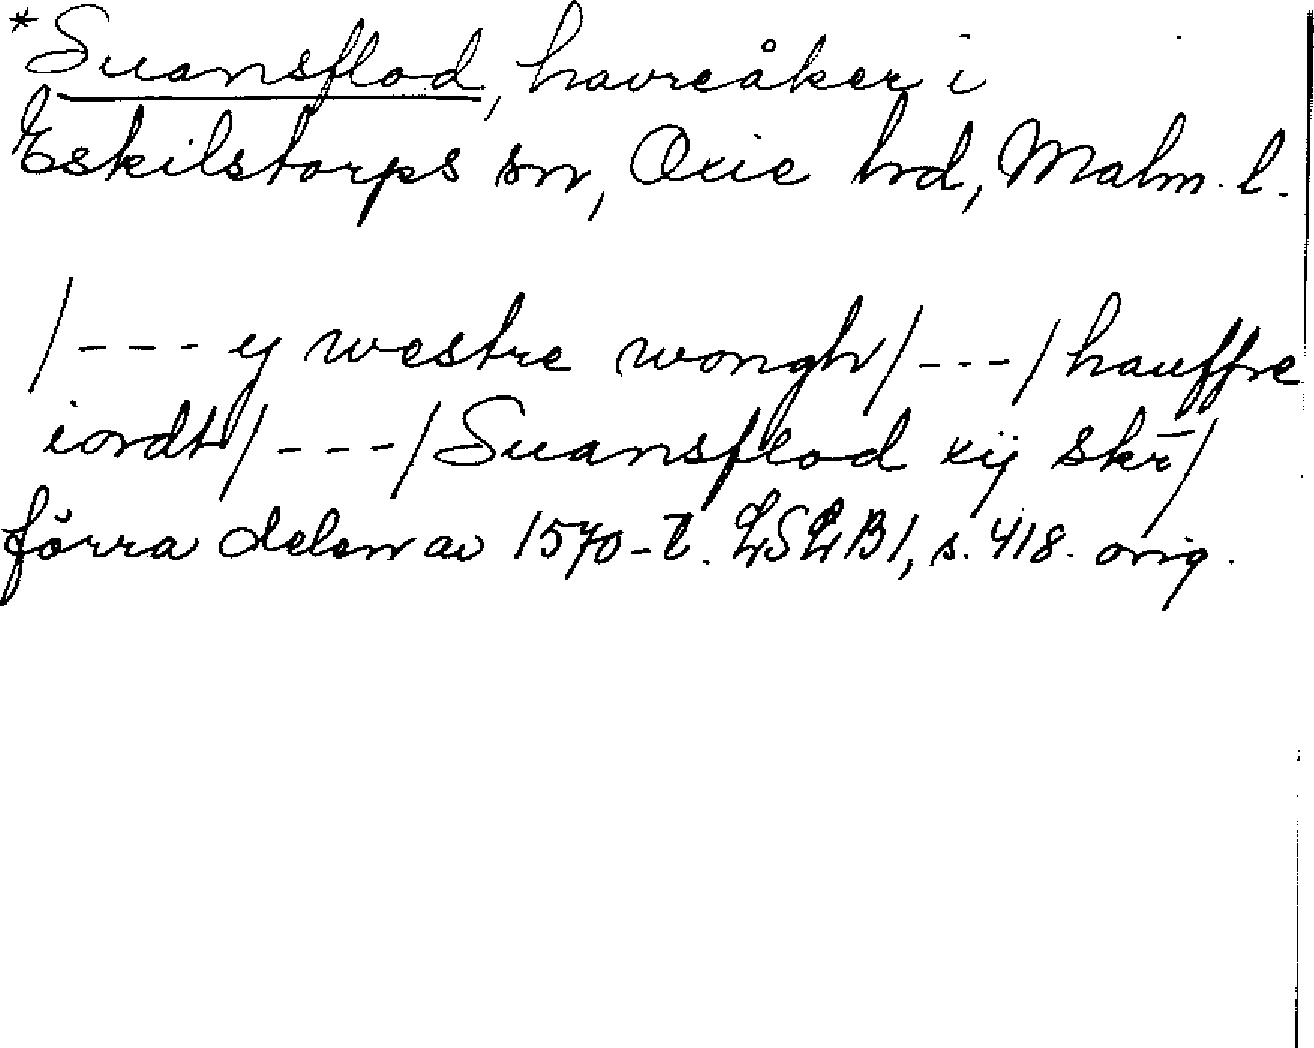 *Suansflod, havreåker i
Eskilstorps sn, Oxie hd, Malm. l.
/--- y westre wongh/---/hauffre
iordt/---/Suansflod xij skr̄/
förra delen av 1570-t. LSLB1, s. 418. orig.